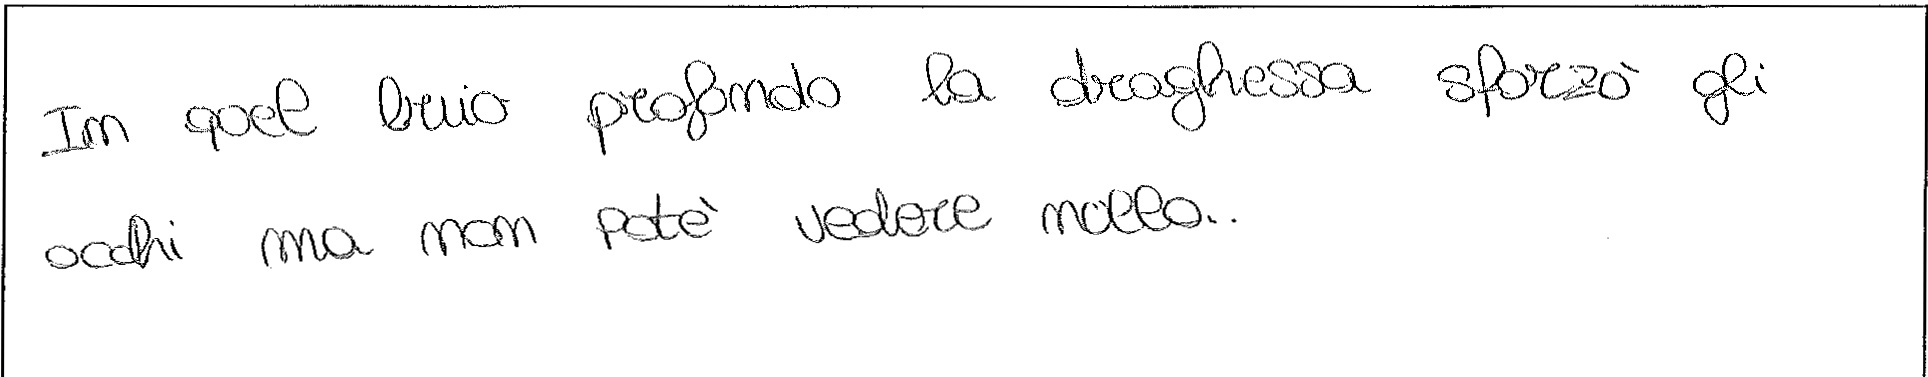 In quel buio profondo la draghessa sforzò gli
occhi ma non potè vedere nulla..